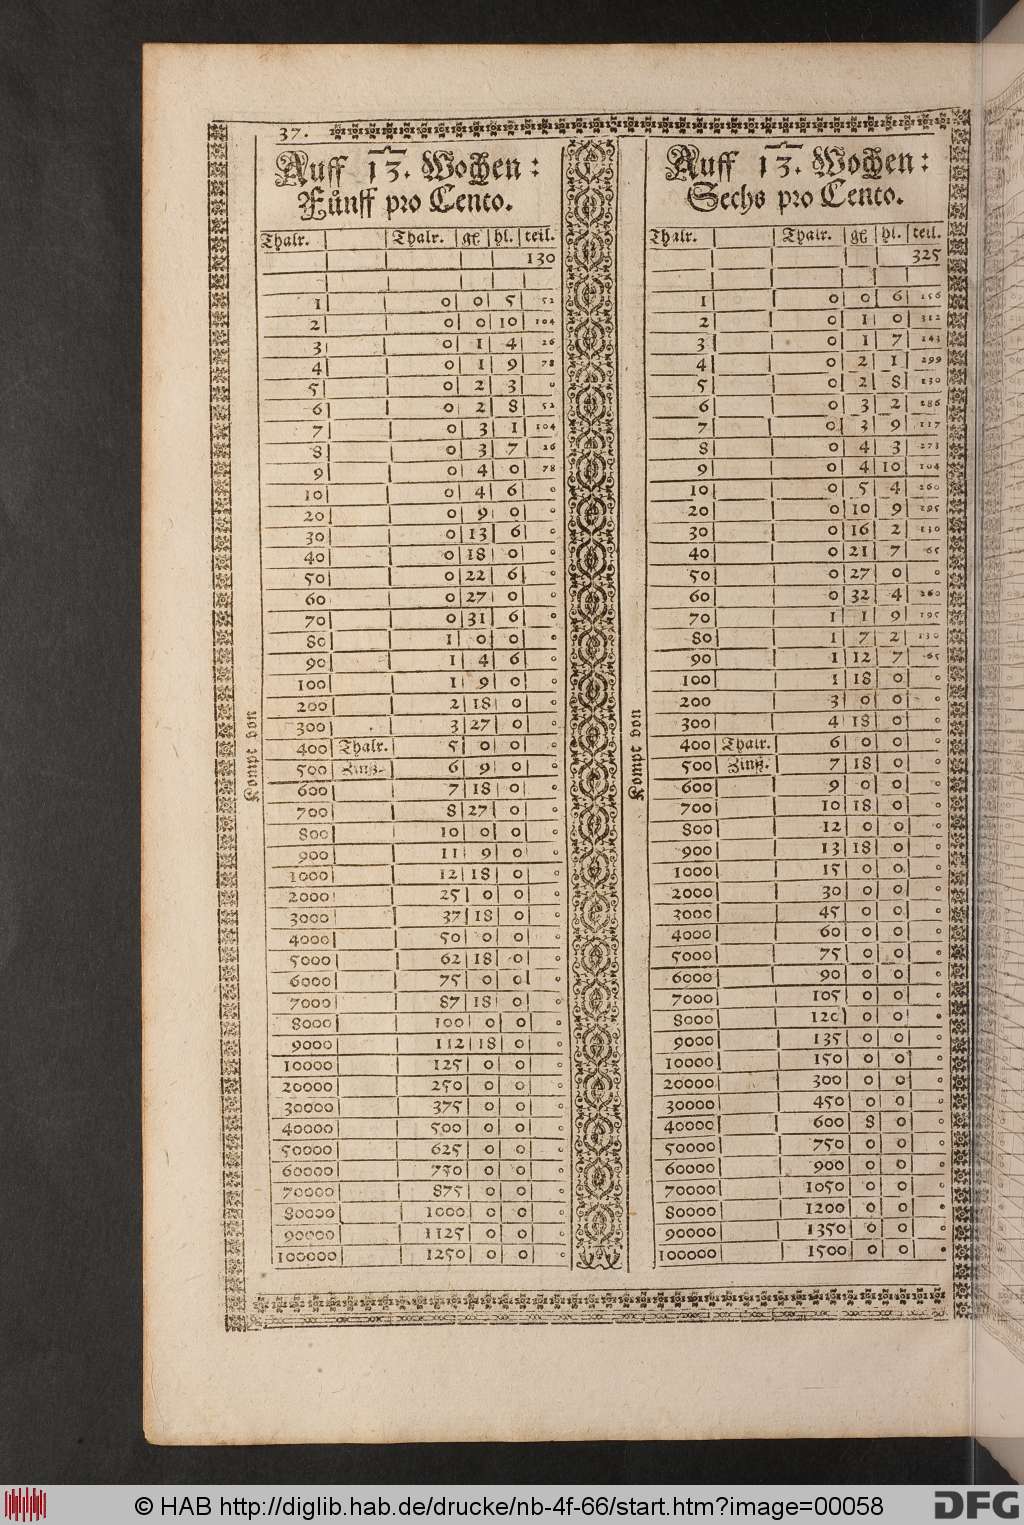 37.
Auff 13. Wochen:
Fuͤnff pro Cento.
Thalr. | | Thalr. | gl | hl. | teil.
130
1 | | 0 | 0 | 5 | 52
2 | | 0 | 0 | 10 | 104
3 | | 0 | 1 | 4 | 26
4 | | 0 | 1 | 9 | 78
5 | | 0 | 2 | 3 | 0
6 | | 0 | 2 | 8 | 52
7 | | 0 | 3 | 1 | 104
8 | | 0 | 3 | 7 | 26
9 | | 0 | 4 | 0 | 78
10 | | 0 | 4 | 6 | 0
20 | | 0 | 9 | 0 | 0
30 | | 0 | 13 | 6 | 0
40 | | 0 | 18 | 0 | 0
50 | | 0 | 22 | 6 | 0
60 | | 0 | 27 | 0 | 0
70 | | 0 | 31 | 6 | 0
80 | | 1 | 0 | 0 | 0
90 | | 1 | 4 | 6 | 0
100 | | 1 | 9 | 0 | 0
200 | | 2 | 18 | 0 | 0
300 | | 3 | 27 | 0 | 0
400 | Thalr. | 5 | 0 | 0 | 0
500 | Zinß. | 6 | 9 | 0 | 0
600 | | 7 | 18 | 0 | 0
700 | | 8 | 27 | 0 | 0
800 | | 10 | 0 | 0 | 0
900 | | 11 | 9 | 0 | 0
1000 | | 12 | 18 | 0 | 0
2000 | | 25 | 0 | 0 | 0
3000 | | 37 | 18 | 0 | 0
4000 | | 50 | 0 | 0 | 0
5000 | | 62 | 18 | 0 | 0
6000 | | 75 | 0 | 0 | 0
7000 | | 87 | 18 | 0 | 0
8000 | | 100 | 0 | 0 | 0
9000 | | 112 | 18 | 0 | 0
10000 | | 125 | 0 | 0 | 0
20000 | | 250 | 0 | 0 | 0
30000 | | 375 | 0 | 0 | 0
40000 | | 500 | 0 | 0 | 0
50000 | | 625 | 0 | 0 | 0
60000 | | 750 | 0 | 0 | 0
70000 | | 875 | 0 | 0 | 0
80000 | | 1000 | 0 | 0 | 0
90000 | | 1125 | 0 | 0 | 0
100000 | | 1250 | 0 | 0 | 0
Kompt von
Auff 13. Wochen:
Sechs pro Cento.
Thalr. | | Thalr. | gl | hl. | teil.
325
1 | | 0 | 0 | 6 | 156
2 | | 0 | 1 | 0 | 312
3 | | 0 | 1 | 7 | 143
4 | | 0 | 2 | 1 | 299
5 | | 0 | 2 | 8 | 130
6 | | 0 | 3 | 2 | 286
7 | | 0 | 3 | 9 | 117
8 | | 0 | 4 | 3 | 273
9 | | 0 | 4 | 10 | 104
10 | | 0 | 5 | 4 | 260
20 | | 0 | 10 | 9 | 195
30 | | 0 | 16 | 2 | 130
40 | | 0 | 21 | 7 | 65
50 | | 0 | 27 | 0 | 0
60 | | 0 | 32 | 4 | 260
70 | | 1 | 1 | 9 | 195
80 | | 1 | 7 | 2 | 130
90 | | 1 | 12 | 7 | 65
100 | | 1 | 18 | 0 | 0
200 | | 3 | 0 | 0 | 0
300 | | 4 | 18 | 0 | 0
400 | Thalr. | 6 | 0 | 0 | 0
500 | Zinß. | 7 | 18 | 0 | 0
600 | | 9 | 0 | 0 | 0
700 | | 10 | 18 | 0 | 0
800 | | 12 | 0 | 0 | 0
900 | | 13 | 18 | 0 | 0
1000 | | 15 | 0 | 0 | 0
2000 | | 30 | 0 | 0 | 0
3000 | | 45 | 0 | 0 | 0
4000 | | 60 | 0 | 0 | 0
5000 | | 75 | 0 | 0 | 0
6000 | | 90 | 0 | 0 | 0
7000 | | 105 | 0 | 0 | 0
8000 | | 120 | 0 | 0 | 0
9000 | | 135 | 0 | 0 | 0
10000 | | 150 | 0 | 0 | 0
20000 | | 300 | 0 | 0 | 0
30000 | | 450 | 0 | 0 | 0
40000 | | 600 | 8 | 0 | 0
50000 | | 750 | 0 | 0 | 0
60000 | | 900 | 0 | 0 | 0
70000 | | 1050 | 0 | 0 | 0
80000 | | 1200 | 0 | 0 | 0
90000 | | 1350 | 0 | 0 | 0
100000 | | 1500 | 0 | 0 | 0
Kompt von
© HAB http://diglib.hab.de/drucke/nb-4f-66/start.htm?image=00058
DFG